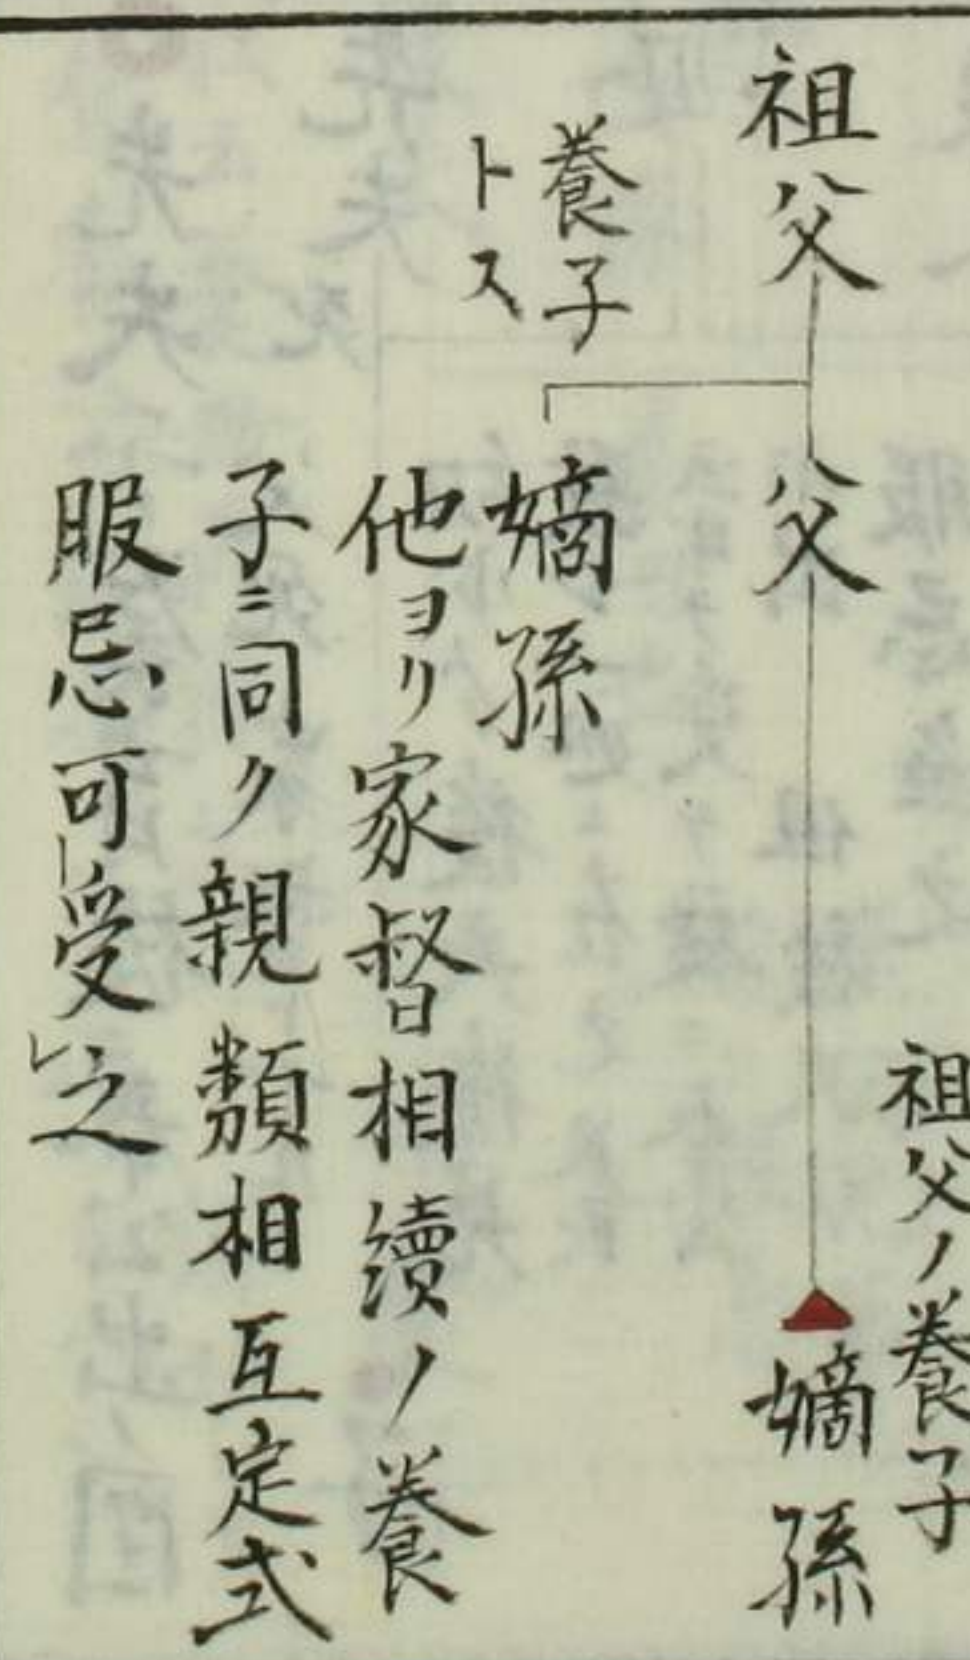 祖父ノ養子
祖父
父
嫡孫
養子
トス
嫡孫
他ヨリ家督相續ノ養
子ニ同ク親類相互定式
服忌可㆑受㆑之